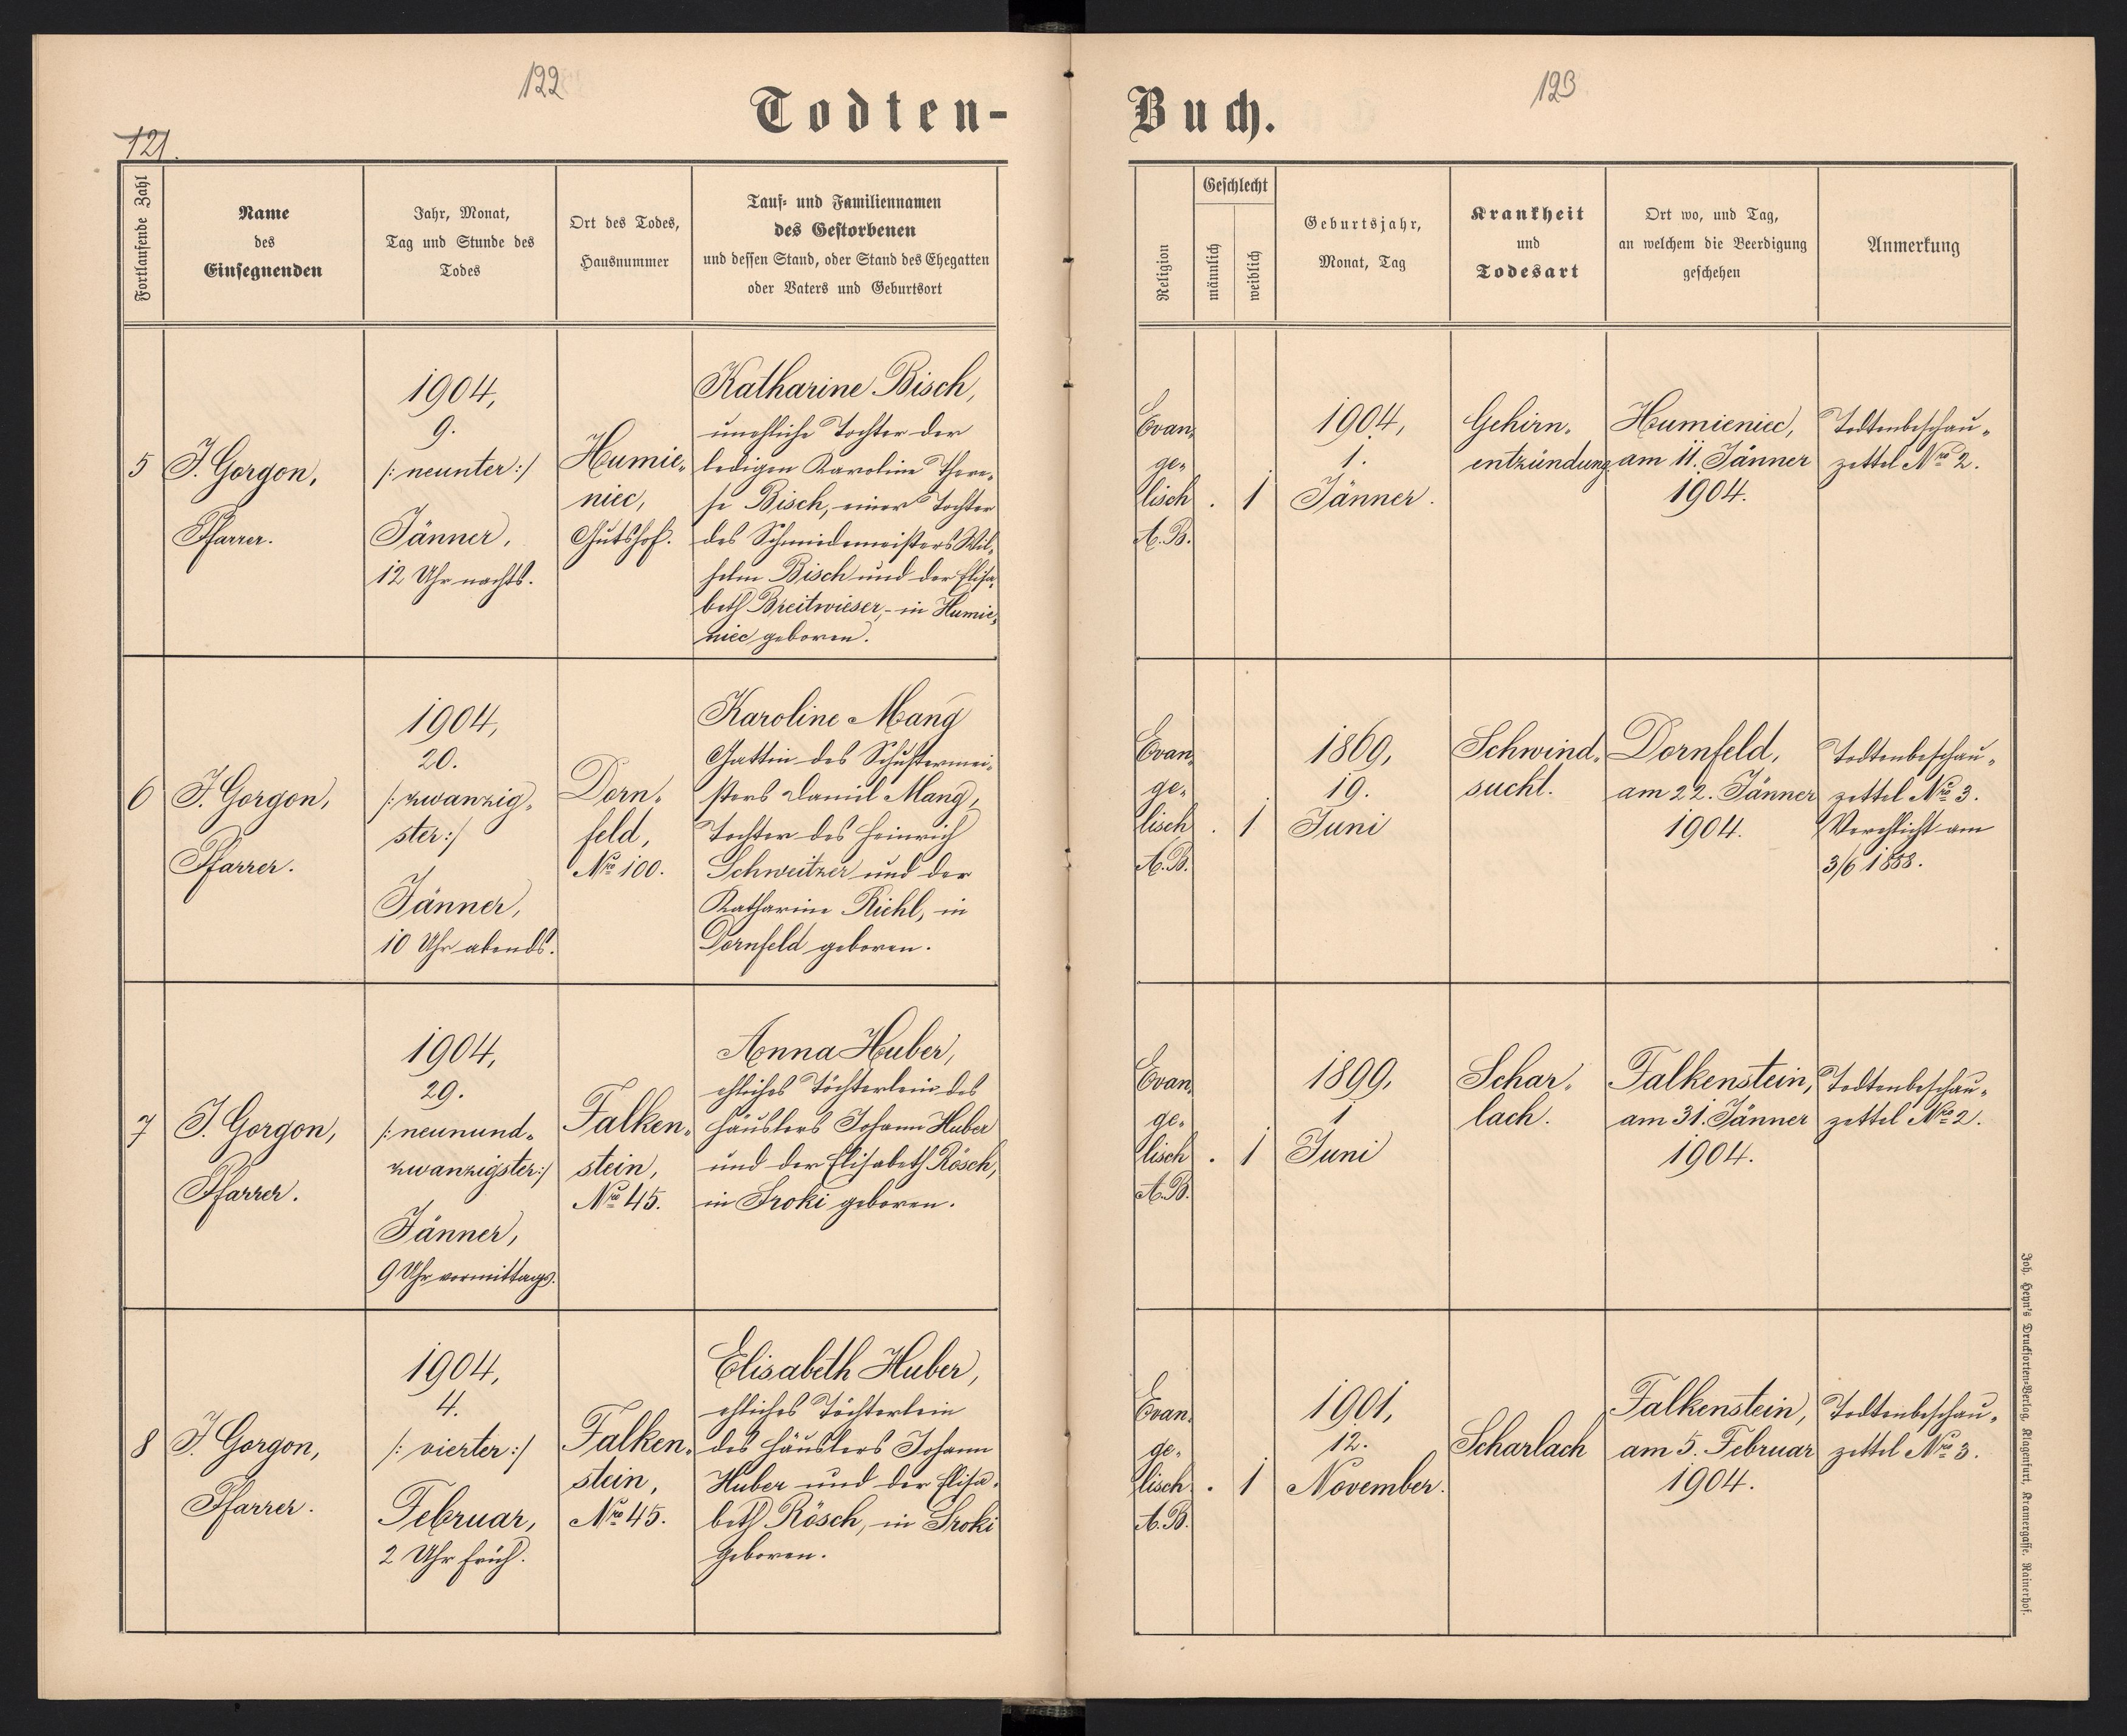 122
121.
Todten-
Fortlaufende Zahl
Name
des
Einsegnenden
Jahr, Monat,
Tag und Stunde des
Todes
Ort des Todes,
Hausnummer
Tauf- und Familiennamen
des Gestorbenen
und dessen Stand, oder Stand des Ehegatten
oder Vaters und Geburtsort
5
J. Gorgon,
Pfarrer.
1904,
9.
/: neunter :/
Jänner,
12 Uhr nachts.
Humie-
niec,
Gutshof.
Katharine Bisch,
unehliche Tochter der
ledigen Karoline There-
se Bisch, einer Tochter
des Schmiedemeisters Wil-
helm Bisch und der Elisa-
beth Breitwieser, - in Humie-
niec geboren.
6
J. Gorgon,
Pfarrer.
1904,
20.
/: zwanzig-
ster :/
Jänner,
10 Uhr abends.
Dorn-
feld,
Nro 100.
Karoline Mang
Gattin des Schustermei-
sters Daniel Mang,
Tochter des Heinrich
Schweitzer und der
Katharine Richl, in
Dornfeld geboren.
7
J. Gorgon,
Pfarrer.
1904,
29.
/: neunund-
zwanzigster :/
Jänner,
9 Uhr vormittags.
Falken-
stein,
Nro 45.
Anna Huber,
ehliches Töchterlein des
Häuslers Johann Huber
und der Elisabeth Rösch,
in Sroki geboren.
8
J. Gorgon,
Pfarrer.
1904,
4.
/: vierter :/
Februar,
2 Uhr früh.
Falken-
stein,
Nro 45.
Elisabeth Huber,
ehliches Töchterlein
des Häuslers Johann
Huber und der Elisa-
beth Rösch, in Sroki
geboren.
123
Buch.
Religion
Geschlecht
männlich
weiblich
Geburtsjahr,
Monat, Tag
Krankheit
und
Todesart
Ort wo, und Tag,
an welchem die Beerdigung
geschehen
Anmerkung
Evan-
ge-
lisch
A.B.
. 1
1904,
1.
Jänner.
Gehirn-
entzündung
Humieniec,
am 11. Jänner
1904.
Todtenbeschau-
zettel Nro 2.
Evan-
ge-
lisch
A.B.
. 1
1869,
19.
Juni
Schwind-
sucht.
Dornfeld,
am 22. Jänner
1904.
Todtenbeschau-
zettel Nro 3.
Verehlicht am
3/6 1888.
Evan-
ge-
lisch
A.B.
. 1
1899,
1
Juni
Schar-
lach.
Falkenstein,
am 31. Jänner
1904.
Todtenbeschau-
zettel Nro 2.
Evan-
ge-
lisch
A.B.
. 1
1901,
12.
November.
Scharlach
Falkenstein,
am 5. Februar
1904.
Todtenbeschau-
zettel Nro 3.
Joh. Heyn's Drucksorten-Verlag, Klagenfurt, Kramergasse, Rainerhof.